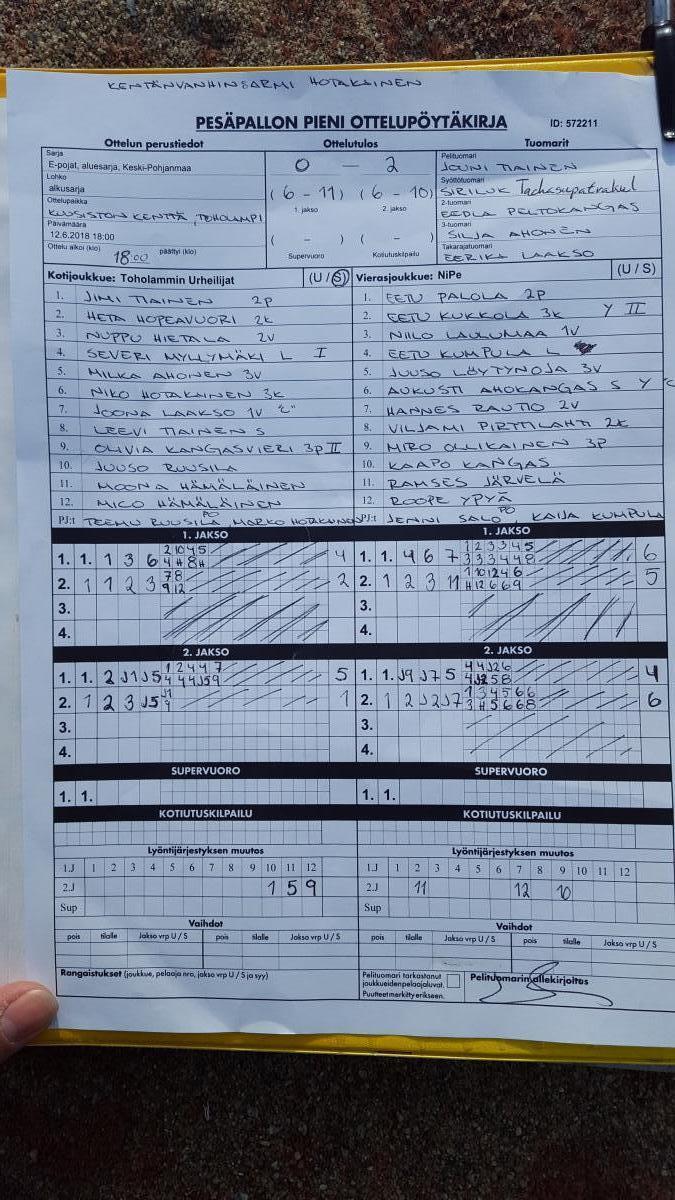 KENTÄNVANHINSARMI HOTAKAINEN
PESÄPALLON PIENI OTTELUPÖYTÄKIRJA ID: 572211
Ottelun perustiedot Ottelutulos Tuomarit
Sarja
E-pojat, aluesarja, Keski-Pohjanmaa
Lohko
alkusarja
Ottelupaikka
KUUSISTON KENTTÄ, TOHOLAMPI
Päivämäärä
12.6.2018 18:00
Ottelu alkoi (klo) 18:00 päättyi (klo)
0 - 2
(6 - 11) (6 - 10)
1. jakso 2. jakso
( - ) ( - )
Supervuoro Kotiutuskilpailu
Pelituomari
JOUNI TIAINEN
Syöttötuomari
SIRILUK
2-tuomari
EEDLA PELTOKANGAS
3-tuomari
SILJA AHONEN
Takarajatuomari
EERIKA LAAKSO
Kotijoukkue: Toholammin Urheilijat (U / S)
1. JIMI TIAINEN 2P
2. HETA HOPEAVUORI 2K
3. NUPPU HIETALA 2V
4. SEVERI MYLLYMÄKI L I
5. MILKA AHONEN 3V
6. NIKO HOTAKAINEN 3K
7. JOONA LAAKSO 1V "C"
8. LEEVI TIAINEN S
9. OLIVIA KANGASVIERI 3P II
10. JUUSO RUUSILA
11. MOONA HÄMÄLÄINEN
12. MICO HÄMÄLÄINEN
PJ:t TEEMU RUUSILA PO MARKO HOTAKAINEN
Vierasjoukkue: NiPe (U / S)
1. EETU PALOLA 2P
2. EETU KUKKOLA 3K Y II
3. NIILO LAULUMAA 1V
4. EETU KUMPULA L
5. JUUSO LÖYTYNOJA 3V
6. AUKUSTI AHOKANGAS S Y "C
7. HANNES RAUTIO 2V
8. VILJAMI PIRTTILAHTI 2K
9. MIRO OLLIKAINEN 3P
10. KAAPO KANGAS
11. RAMSES JÄRVELÄ
12. ROOPE YPYÄ
PJ:t JENNI SALO PO KAIJA KUMPULA
1. JAKSO
1. 1. 1 3 6 4
2. 1 1 2 3 2
3.
4.
1. JAKSO
1. 1. 4 6 7 6
2. 1 2 3 11 5
3.
4.
2. JAKSO
1. 1. 2 J1 J5 5
2. 1 2 3 J5 1
3.
4.
2. JAKSO
1. 1. J9 J7 5 4
2. 1 2 J2 J7 6
3.
4.
SUPERVUORO
1. 1.
SUPERVUORO
1. 1.
KOTIUTUSKILPAILU
KOTIUTUSKILPAILU
Lyöntijärjestyksen muutos
1.J 1 2 3 4 5 6 7 8 9 10 11 12
2.J 1 5 9
Sup
Lyöntijärjestyksen muutos
1.J 1 2 3 4 5 6 7 8 9 10 11 12
2.J 11 12 10
Sup
Vaihdot
pois tilalle Jakso vrp U / S pois tilalle Jakso vrp U / S
Vaihdot
pois tilalle Jakso vrp U / S pois tilalle Jakso vrp U / S
Rangaistukset (joukkue, pelaaja nro, jakso vrp U / S ja syy)
Pelituomari tarkastanut
joukkueidenpelaajaluvat.
Puutteet merkitty erikseen.
Pelituomarin allekirjoitus